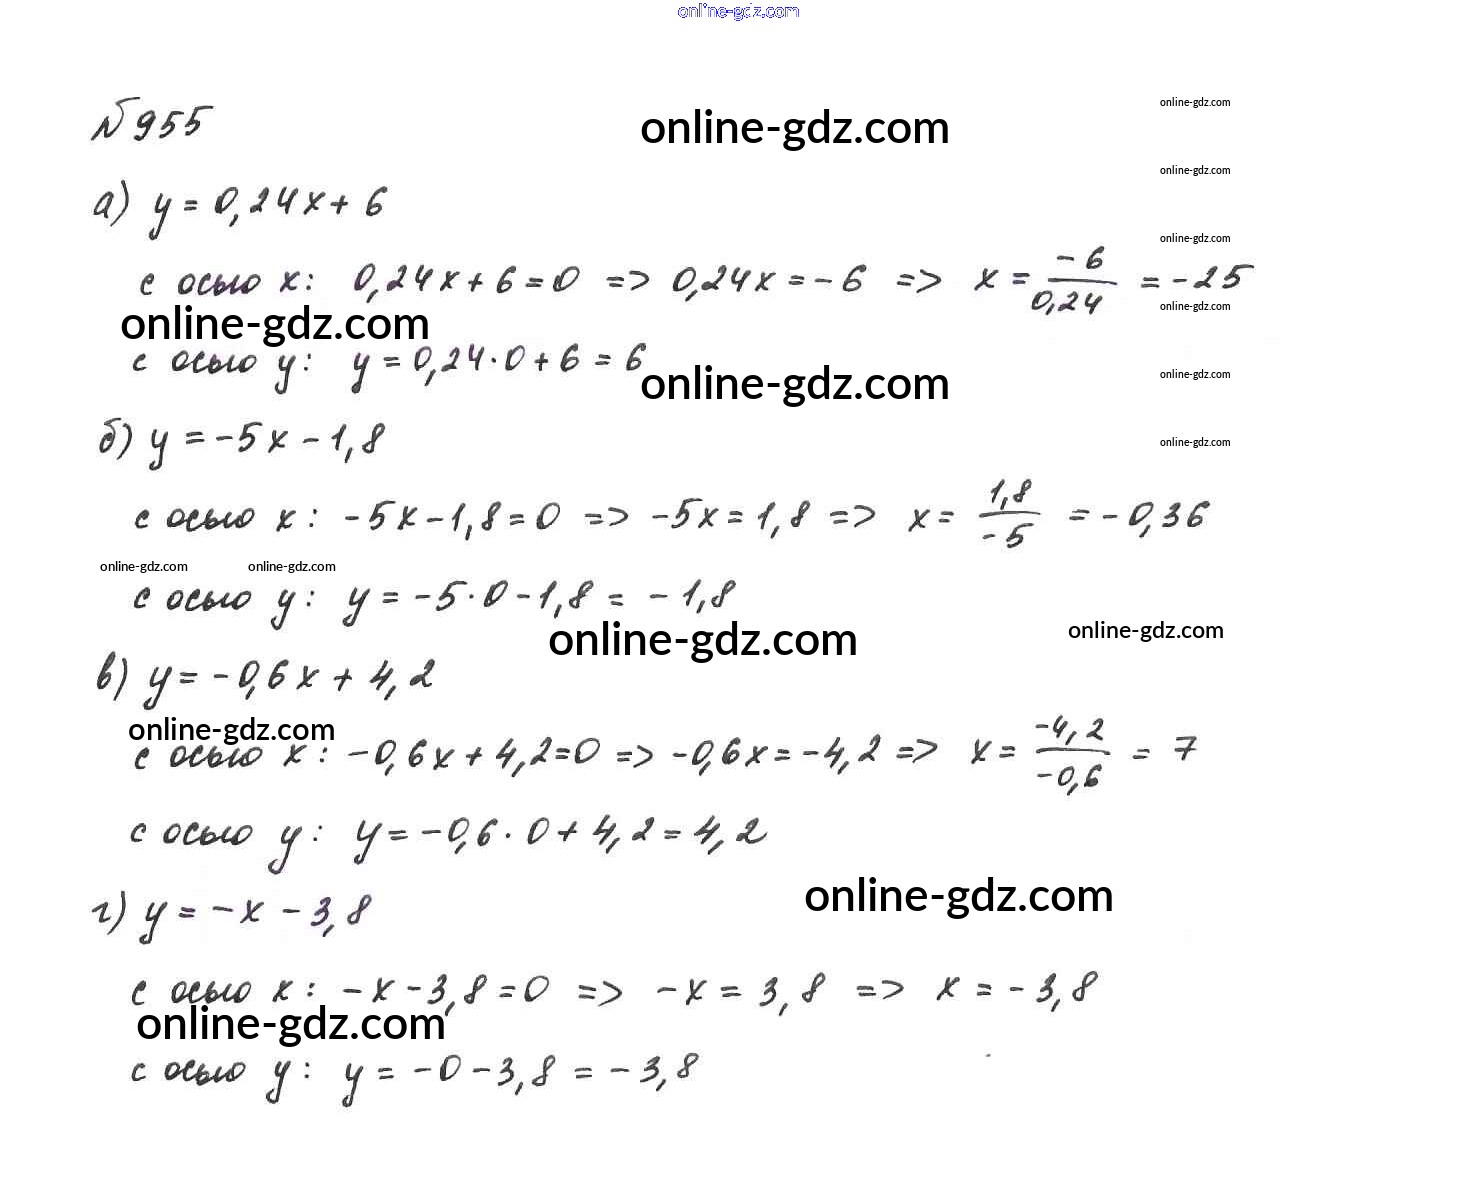 online-gdz.com
№955
online-gdz.com
online-gdz.com
online-gdz.com
а) y = 0,24x + 6
online-gdz.com
с осью x: 0,24x + 6 = 0 => 0,24x = -6 => x = -6/0,24 = -25
online-gdz.com
online-gdz.com
с осью y: y = 0,24·0 + 6 = 6
online-gdz.com
online-gdz.com
б) y = -5x - 1,8
online-gdz.com
с осью x: -5x - 1,8 = 0 => -5x = 1,8 => x = 1,8/-5 = -0,36
online-gdz.com
online-gdz.com
с осью y: y = -5·0 - 1,8 = -1,8
online-gdz.com
online-gdz.com
в) y = -0,6x + 4,2
online-gdz.com
с осью x: -0,6x + 4,2 = 0 => -0,6x = -4,2 => x = -4,2/-0,6 = 7
с осью y: y = -0,6·0 + 4,2 = 4,2
online-gdz.com
г) y = -x - 3,8
с осью x: -x - 3,8 = 0 => -x = 3,8 => x = -3,8
online-gdz.com
с осью y: y = -0 - 3,8 = -3,8